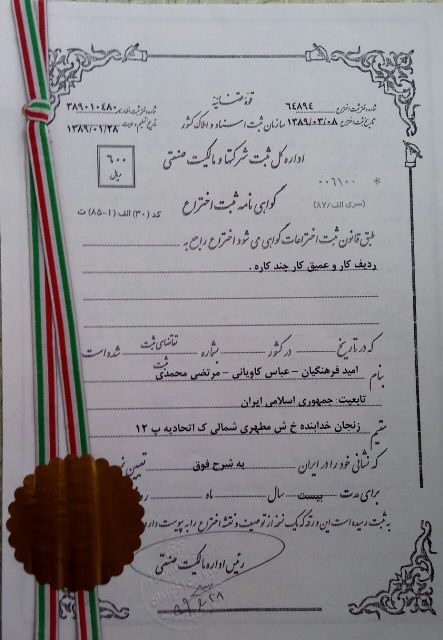 قوه قضائیه
شماره دفتر ثبت اختراع ۶۴۸۹۴
شماره دفتر ثبت اظهارنامه ۳۸۹۰۱۰۴۸۰
سازمان ثبت اسناد و املاک کشور
تاریخ ثبت اختراع ۱۳۸۹/۰۳/۰۸
تاریخ تسلیم ۱۳۸۹/۰۱/۲۸
اداره کل ثبت شرکتها و مالکیت صنعتی
۶۰۰
ریال
* ۰۰۶۱۰۰
گواهی نامه ثبت اختراع
(سری الف/۸۷)
کد (۳۰) الف (۱-۸۵) ت
طبق قانون ثبت اختراعات گواهی می شود اختراع راجع به
ردیف کار و عمیق کار چند کاره .
که در تاریخ در کشور بشماره تقاضای ثبت شده است
ثبت
بنام امید فرهنگیان – عباس کاویانی – مرتضی محمدی
تابعیت: جمهوری اسلامی ایران
مقیم زنجان خدابنده خ ش مطهری شمالی ک اتحادیه پ ۱۲
که نشانی خود را در ایران به شرح فوق تعیین
برای مدت بیست سال ماه
به ثبت رسیده است این ورقه که یک نسخه از توصیف و نقشه اختراع را به پیوست دارد
رئیس اداره مالکیت صنعتی